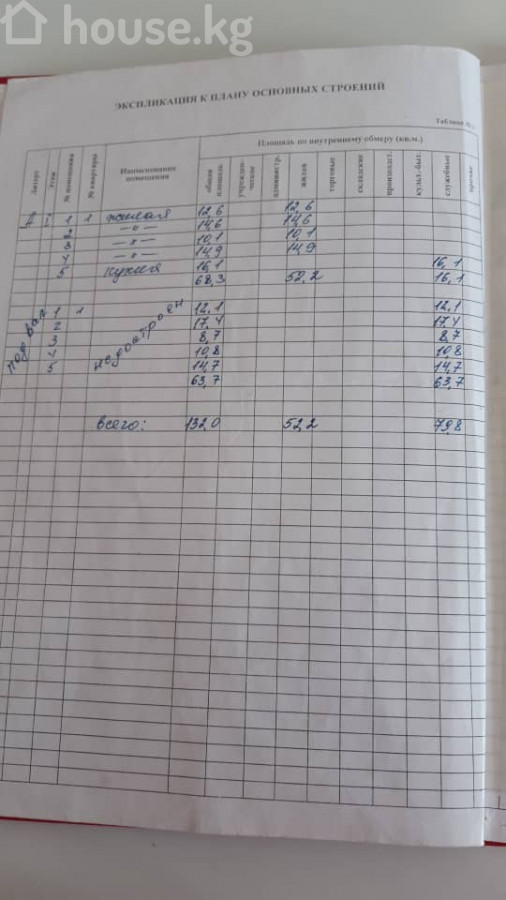 house.kg
ЭКСПЛИКАЦИЯ К ПЛАНУ ОСНОВНЫХ СТРОЕНИЙ
Таблица №
Литера Этаж № помещения № квартиры Наименование помещения Площадь по внутреннему обмеру (кв.м.)
общая площадь учрежден-ческие администр. жилая торговые складские производст. культ.-быт. служебные прочие
1 1 жилая 12,6 12,6
2 —"— 14,6 14,6
3 —"— 10,1 10,1
4 —"— 14,9 14,9
5 кухня 16,1 16,1
68,3 52,2 16,1
подвал недостроен
1 1 12,1 12,1
2 17,4 17,4
3 8,7 8,7
4 10,8 10,8
5 14,7 14,7
63,7 63,7
всего: 132,0 52,2 79,8